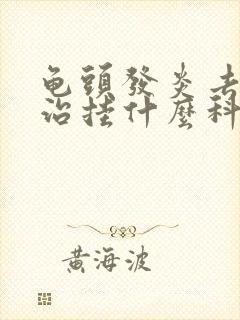 龟頭發炎去
治挂什麼科
黄海波